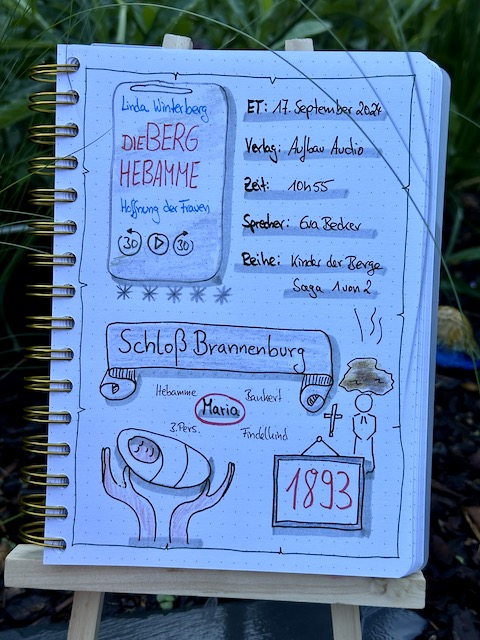 Linda Winterberg
DIE BERG
HEBAMME
Hoffnung der Frauen
30 30
ET: 17. September 2024
Verlag: Aufbau Audio
Zeit: 10h55
Sprecher: Eva Becker
Reihe: Kinder der Berge
Saga 1 von 2
Schloß Brannenburg
Hebamme Bankert
Maria
3.Pers. Findelkind
1893